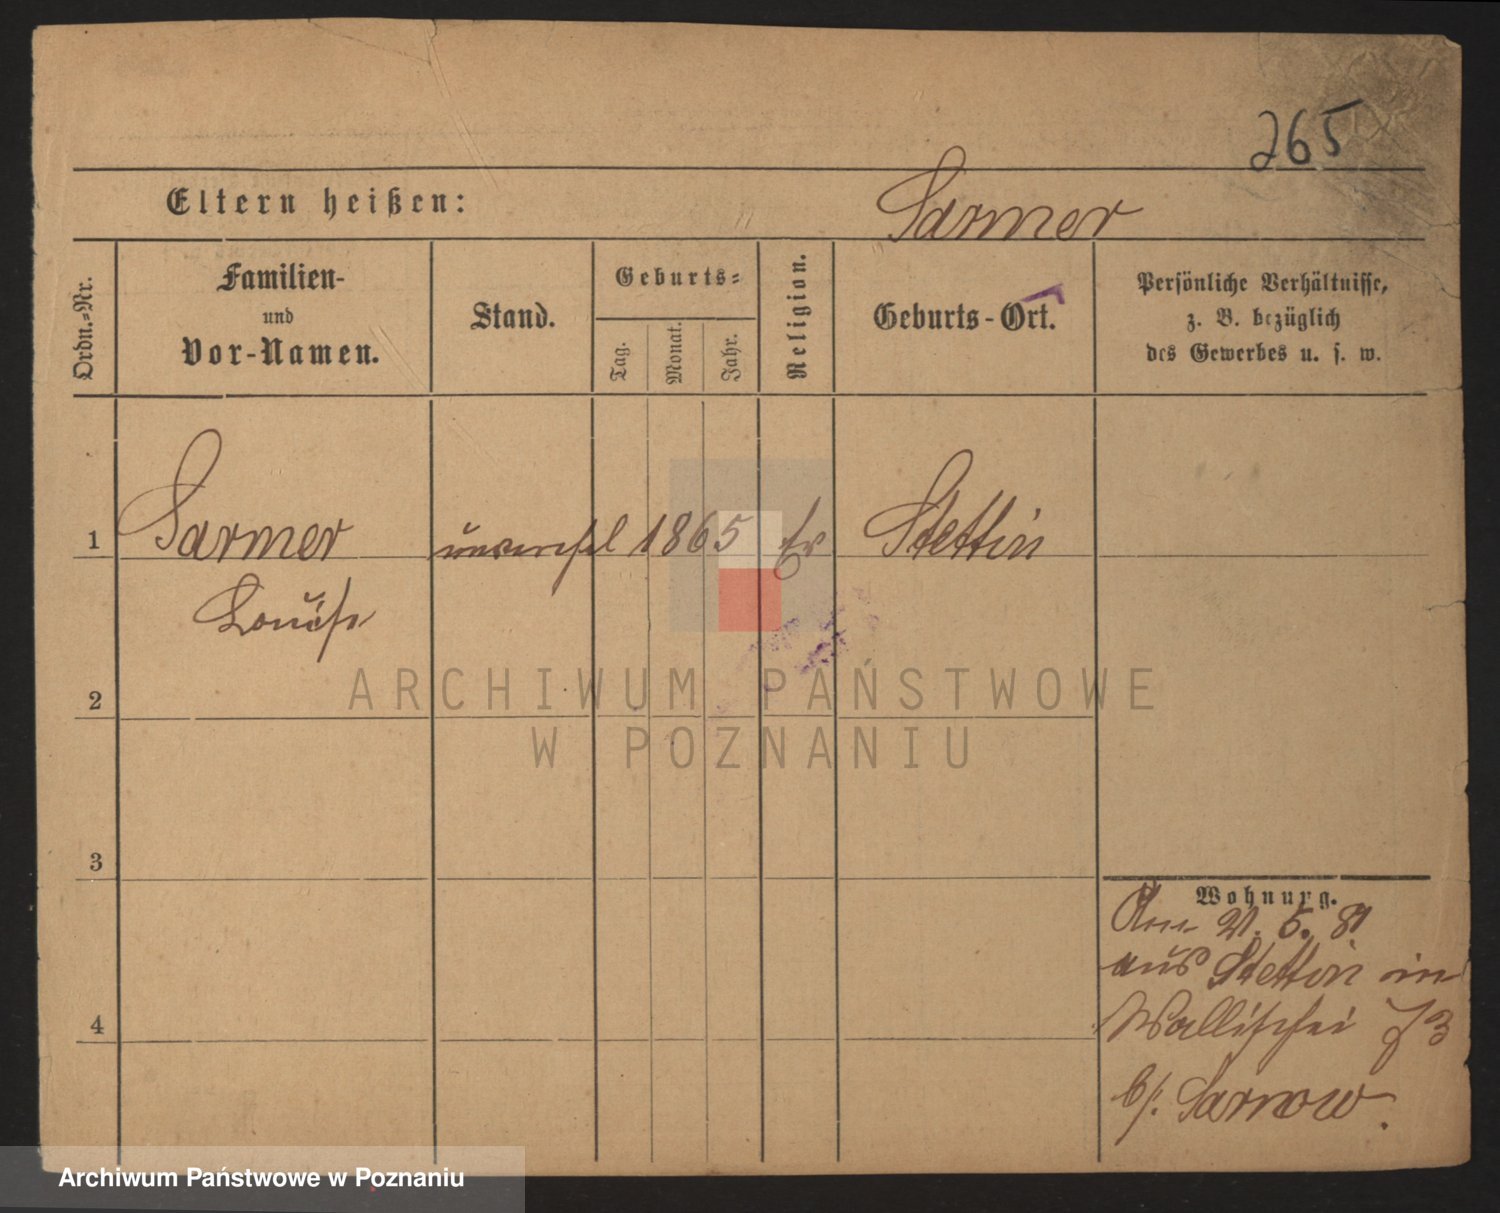 265
Eltern heißen:
Sarmer
Ordn.-Nr.
Familien-
und
Vor-Namen.
Stand.
Geburts-
Tag.
Monat.
Jahr.
Religion.
Geburts-Ort.
Persönliche Verhältnisse,
z. B. bezüglich
des Gewerbes u. s. w.
1 Sarmer 1865 Ev Stettin
Louise
2
3
4
Wohnung.
21. 5. 81
aus Stettin in
Wallischei 73
b/. Sarnow.
ARCHIWUM PAŃSTWOWE
W POZNANIU
Archiwum Państwowe w Poznaniu